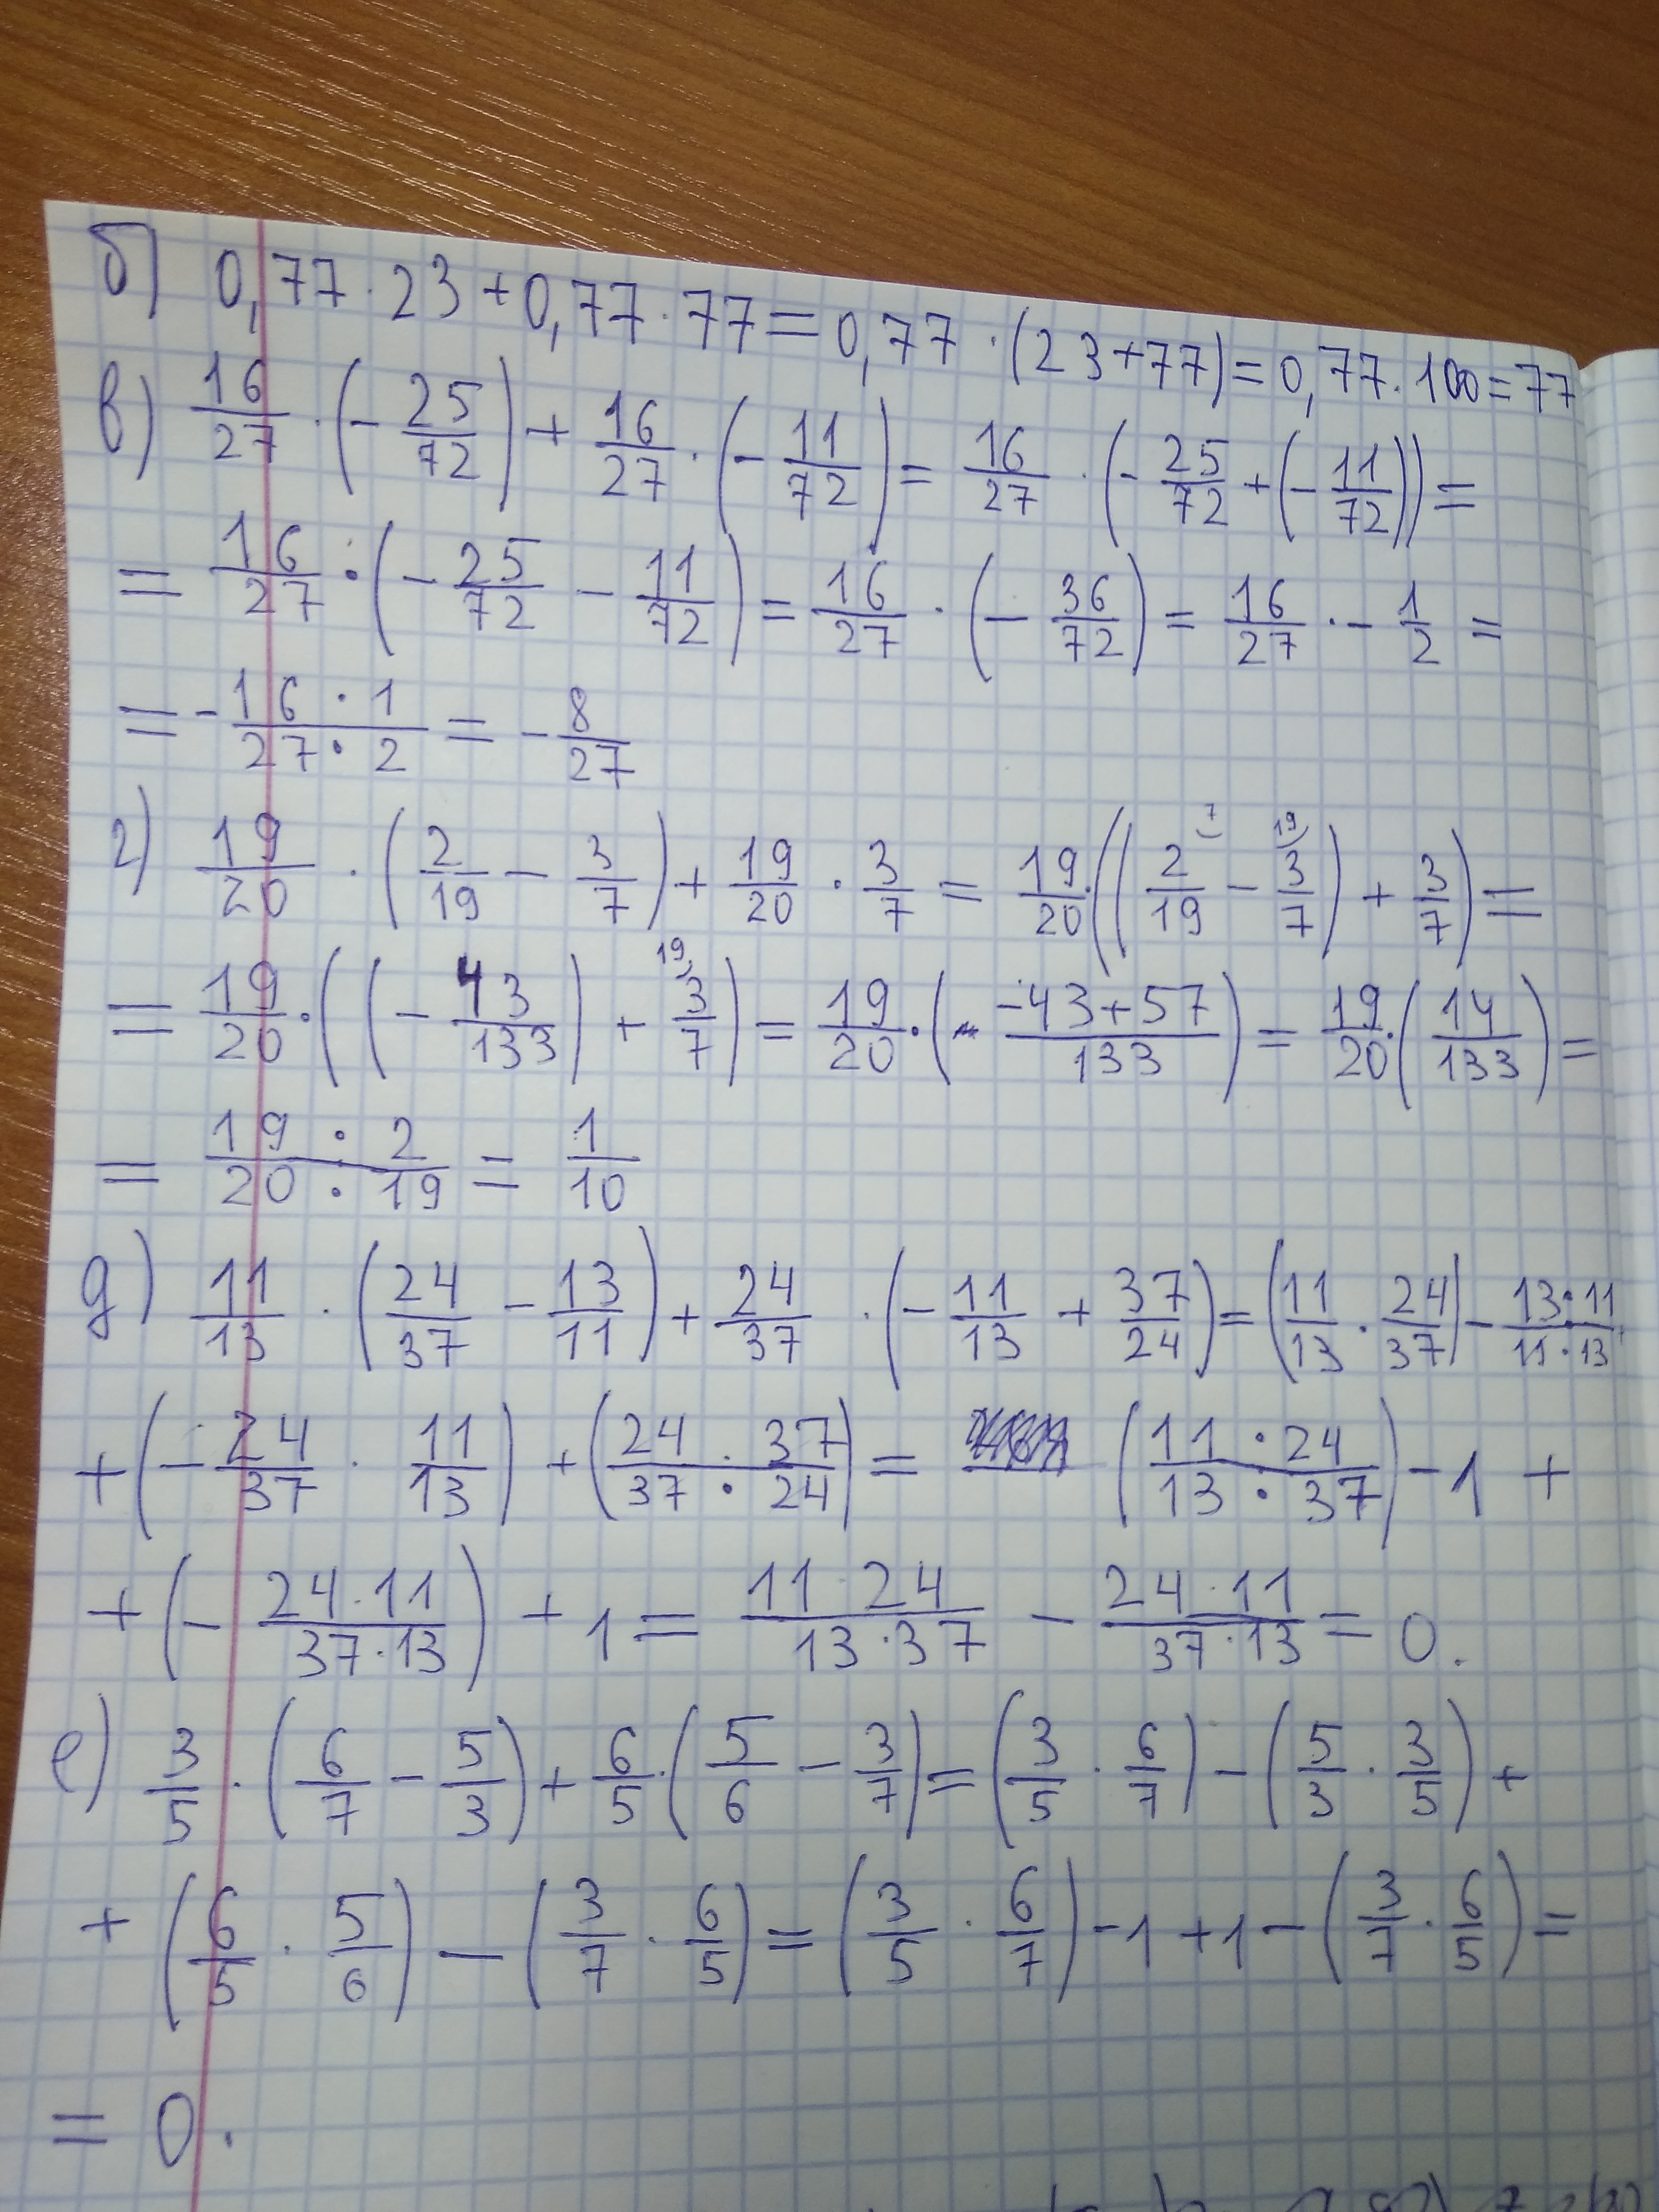 б) 0,77 · 23 + 0,77 · 77 = 0,77 · (23 + 77) = 0,77 · 100 = 77
в) 16/27 · (- 25/72) + 16/27 · (- 11/72) = 16/27 · (- 25/72 + (- 11/72)) =
= 16/27 · (- 25/72 - 11/72) = 16/27 · (- 36/72) = 16/27 · - 1/2 =
= - (16 · 1)/(27 · 2) = - 8/27
г) 19/20 · (2/19 - 3/7) + 19/20 · 3/7 = 19/20 · ((2/19 - 3/7) + 3/7) =
= 19/20 · ((- 43/133) + 3/7) = 19/20 · ((-43+57)/133) = 19/20 · (14/133) =
= (19 · 2)/(20 · 19) = 1/10
д) 11/13 · (24/37 - 13/11) + 24/37 · (- 11/13 + 37/24) = (11/13 · 24/37) - (13 · 11)/(11 · 13)
+ (- 24/37 · 11/13) + ((24 · 37)/(37 · 24)) = ((11 · 24)/(13 · 37)) - 1 +
+ (- (24 · 11)/(37 · 13)) + 1 = (11 · 24)/(13 · 37) - (24 · 11)/(37 · 13) = 0.
е) 3/5 · (6/7 - 5/3) + 6/5 · (5/6 - 3/7) = (3/5 · 6/7) - (5/3 · 3/5) +
+ (6/5 · 5/6) - (3/7 · 6/5) = (3/5 · 6/7) - 1 + 1 - (3/7 · 6/5) =
= 0.